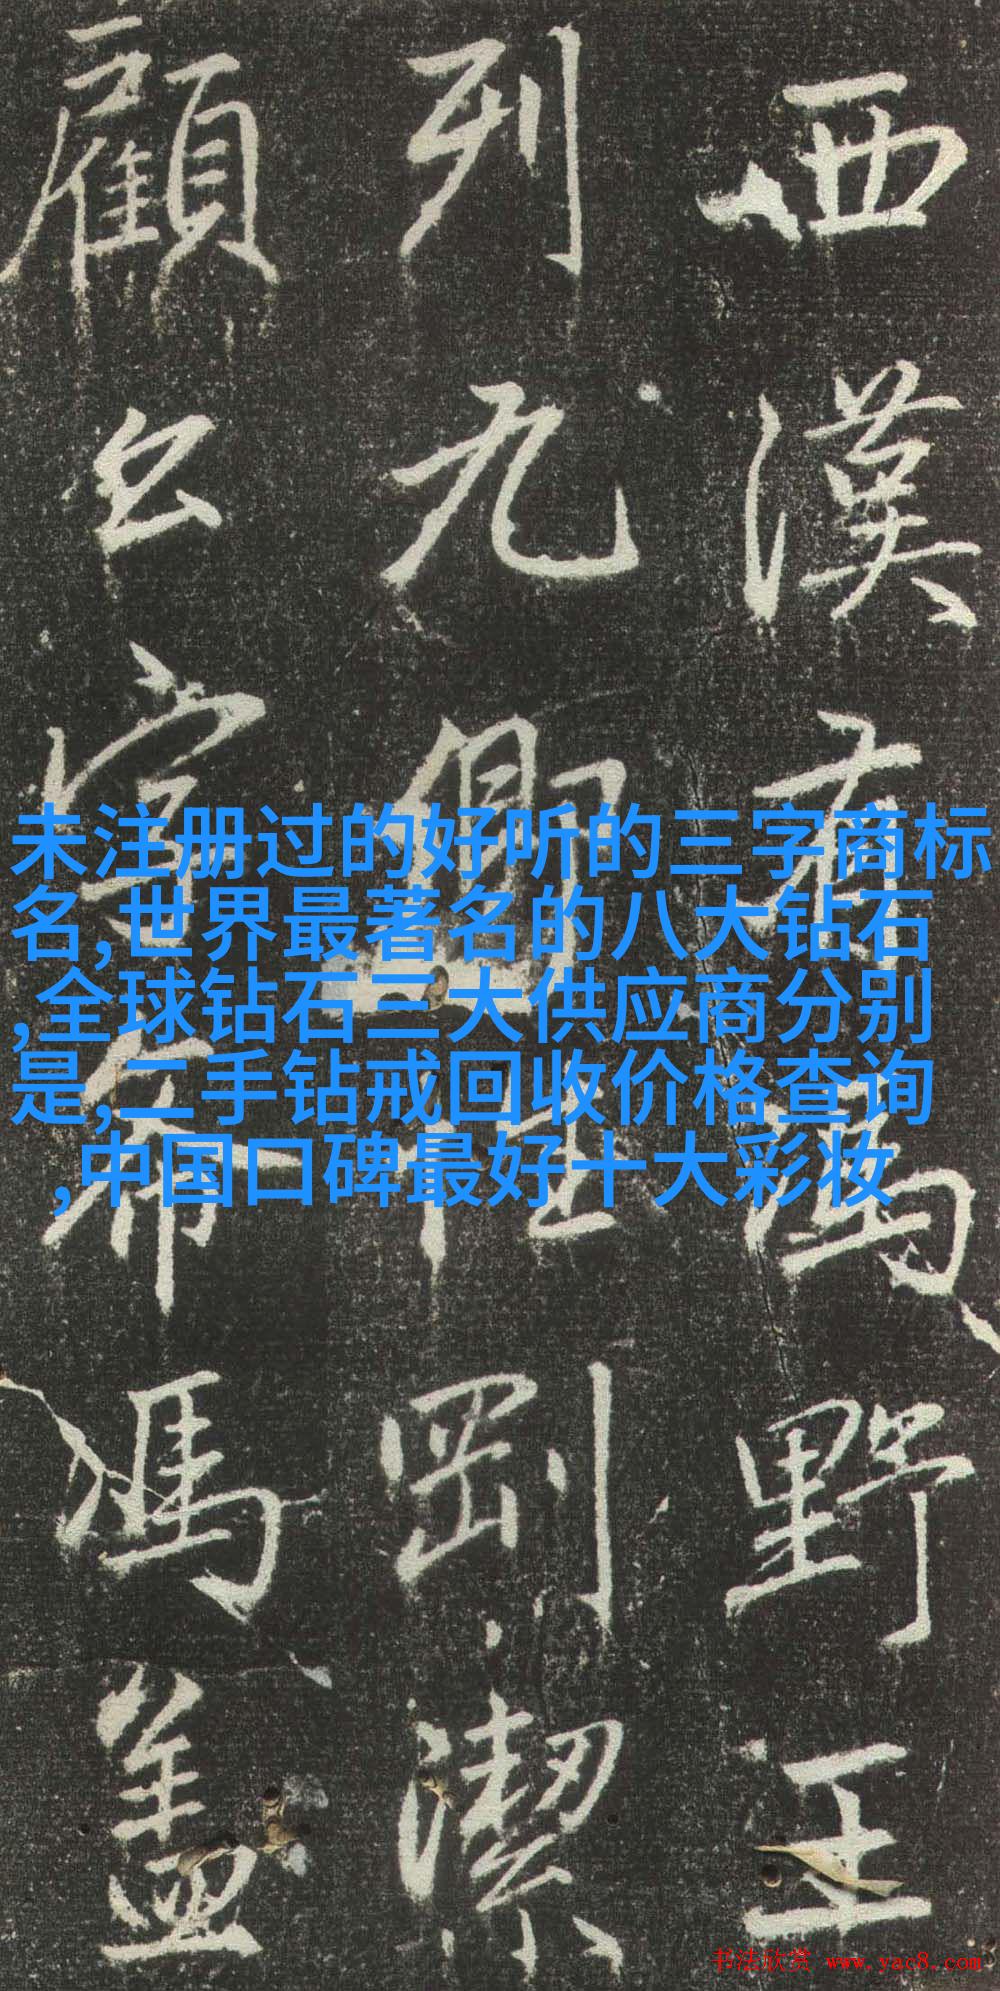 西漢有馮野王
列九卿
剛潔
顧
馮
盖
未注册过的好听的三字商标
名,世界最著名的八大钻石
,全球钻石三大供应商分别
是,二手钻戒回收价格查询
,中国口碑最好十大彩妆
书法欣赏 www.yac8.com